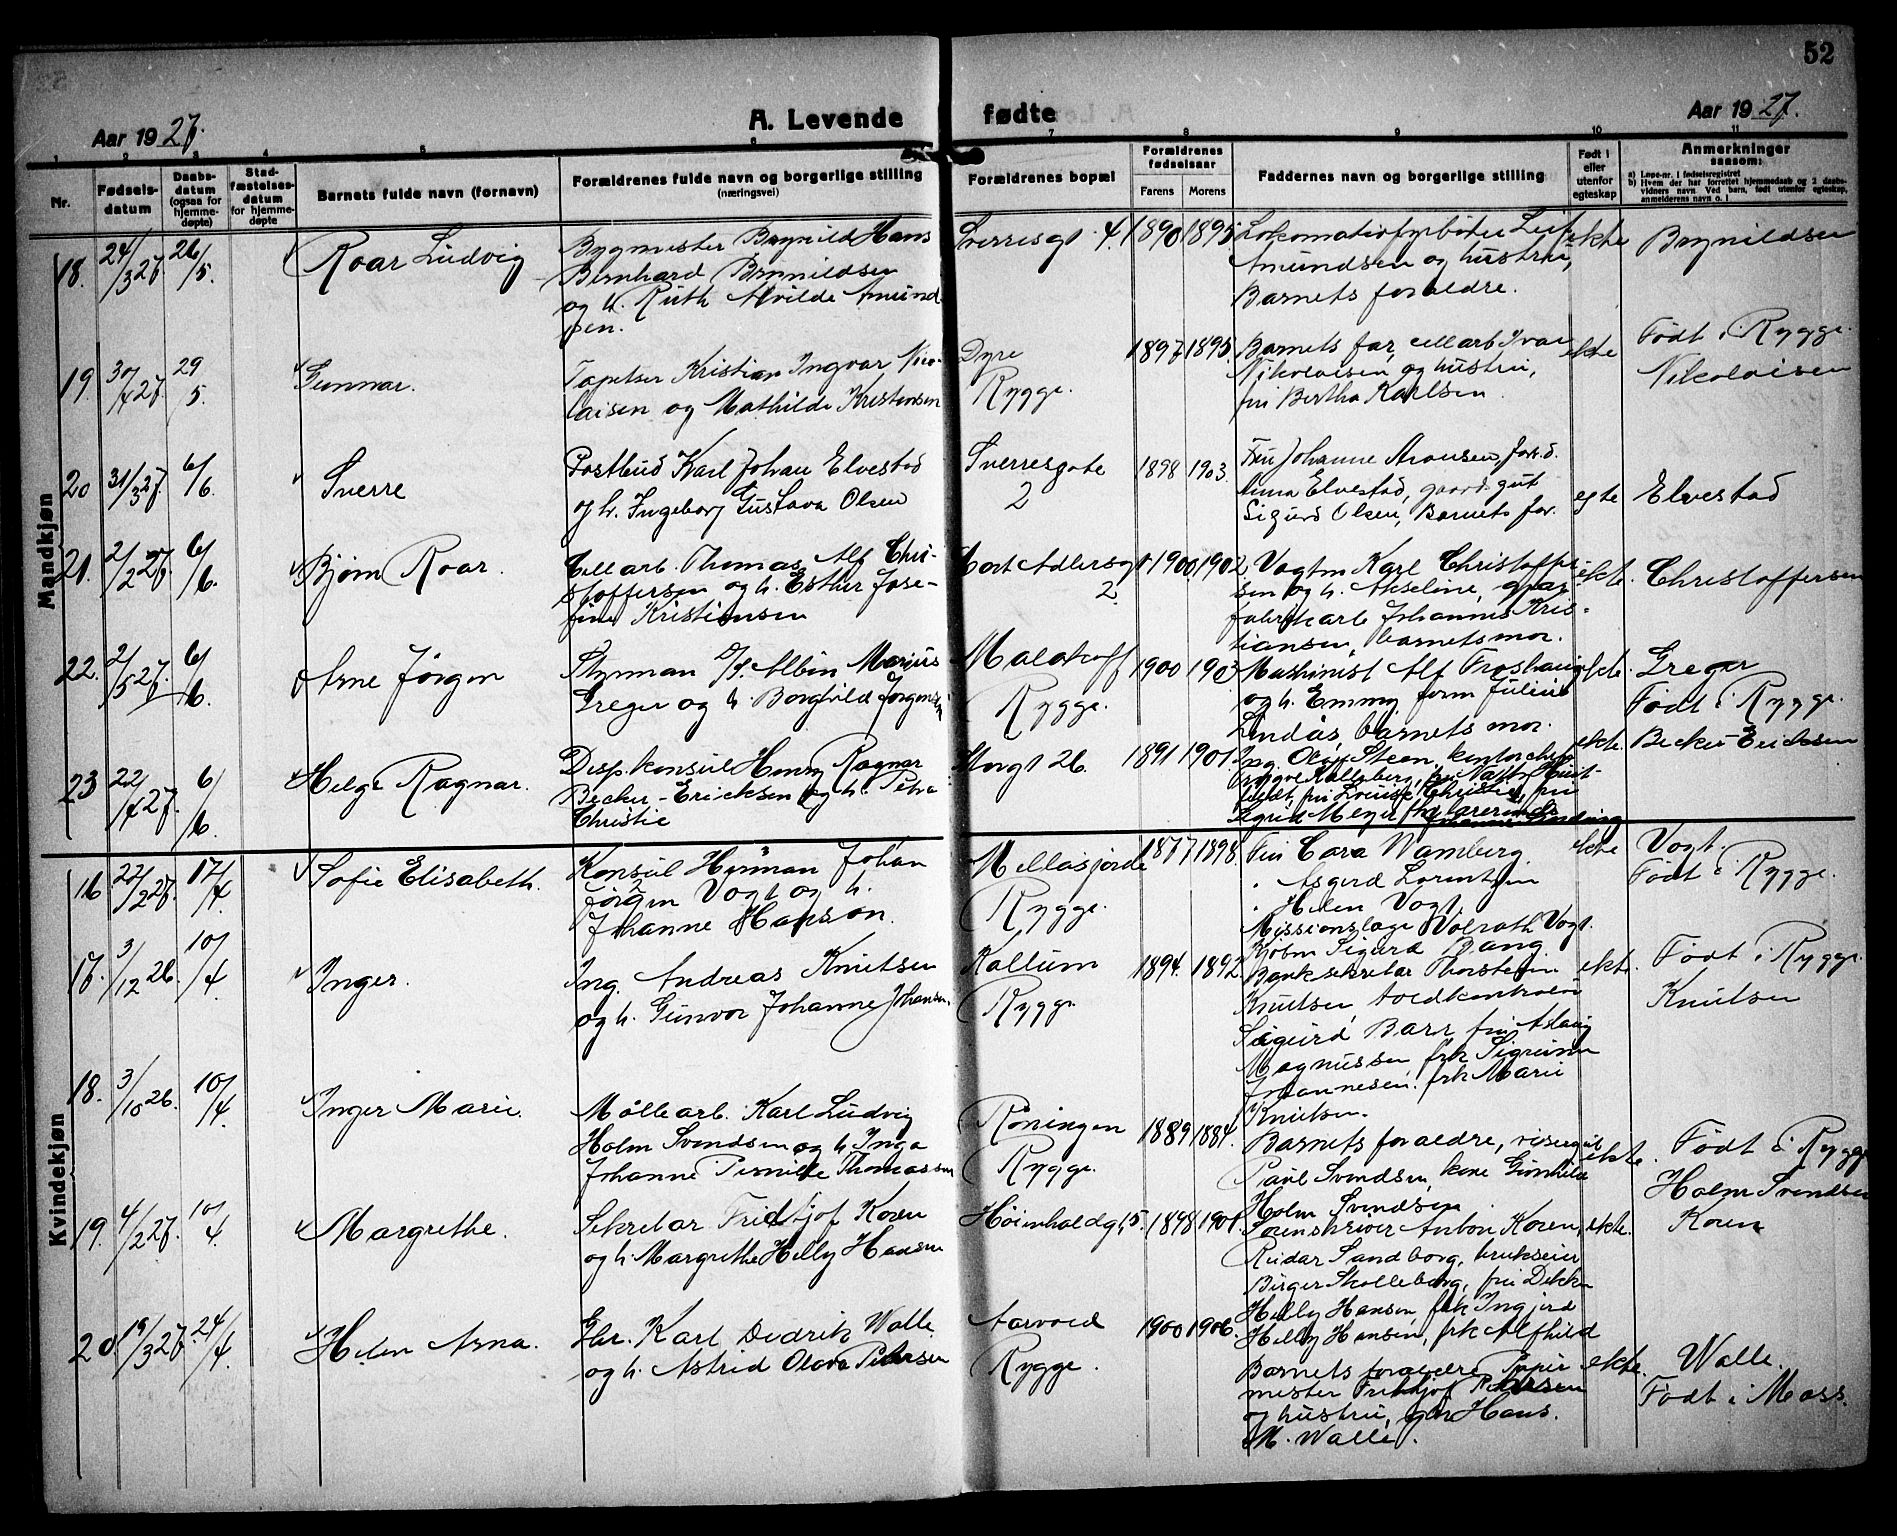 52
Aar 1927.
A. Levende fødte
Aar 1927.
1 2 3 4 5 6 7 8 9 10 11
Nr.
Fødsels-
datum
Daabs-
datum
(ogsaa for
hjemme-
døpte)
Stad-
fæstelses-
datum
for hjemme-
døpte
Barnets fulde navn (fornavn)
Forældrenes fulde navn og borgerlige stilling
(næringsvei)
Forældrenes bopæl
Forældrenes
fødselsaar
Farens Morens
Faddernes navn og borgerlige stilling
Født i
eller
utenfor
egteskap
Anmerkninger
saasom:
a) Løpe-nr. i fødselsregistret
b) Hvem der har forrettet hjemmedaab og 2 daabs-
vidners navn. Ved barn, født utenfor egteskap,
anmelderens navn o. l.
Mandkjøn
18. 24/3 27. 26/5. Roar Ludvig
Bygmester Brynild Hans
Bernhard Brynildsen
og h. Ruth Alvilde Amund
sen.
Sverresgt. 4. 1890 1895
Lokomotivfyrbøter Leif
Amundsen og hustru,
Barnets foraldre.
ekte Brynildsen
19. 30/4 27. 29/5. Gunnar.
Tapetser Kristian Ingvar Niko
laisen og Mathilde Kristensen
Dyre
Rygge.
1897 1895.
Barnets far, cellarb Ivar
Nikolaisen og hustru,
fru Bertha Karlsen.
ekte
Født i Rygge.
Nikolaisen
20 31/3 27. 6/6. Sverre
Postbud Karl Johan Elvestad
og h. Ingeborg Gustava Olsen
Sverresgate
2
1898 1903.
Fru Johanne Aronsen, Jord.
Anna Elvestad, gaard.gut
Sigurd Olsen, Barnets far.
egte Elvestad
21. 2/2 27. 6/6. Bjørn Roar.
Cellarb. Thomas Alf Chri-
stoffersen og h. Esther Jose-
fine Kristiansen
Cort Adlersgt
2.
1900 1902
Vogtm Karl Christoffer
sen og h. Akseline,
fabrikarb Johannes Kris-
tiansen, barnets mor.
ekte. Christoffersen
22. 2/5 27. 6/6. Arne Jørgen
Styrman D/S. Albin Marius
Greger og h Borghild Jørgensen
Malakoff
Rygge.
1900 1903
Maskinist Alf Froshaug
og h. Emmy, form Julius
Lindås, barnets mor.
ekte. Greger
Født i Rygge.
23 22/4 27. 6/6. Helge Ragnar.
Disp. konsul Henry Ragnar
Becker-Ericksen og h. Petra
Christie
Storgt 26. 1891 1901.
Ing. Olaf Steen, kontorchef
Trygve Kalleberg,
fru Louise Christie, fru
Sigrid Meyer
ekte. Becker-Ericksen
Kvindekjøn
16 22/2 27. 17/4. Sofie Elisabeth.
Konsul Herman Johan
Jörgen Vogt og h.
Johanne Hanson.
Mellosjorde
Rygge.
1877 1898
Fru Cara Wamberg.
" Asgerd Lorentzen
" Helen Vogt.
Missionslæge Volrath Vogt.
ekte Vogt.
Født i Rygge.
17. 3/12 26. 10/4. Inger.
Ing. Andreas Knutsen
og h. Gunvor Johanne Johansen.
Kallum
Rygge
1894. 1892.
Kjøbm Sigurd Bang
Banksekretær Thorstein
Knutsen, tvedkontrolør
Sigurd Barr, fru Aslaug
Magnussen, frk Sigrunn
Johannesen. frk Marie
Knutsen.
ekte.
Født i Rygge.
Knutsen
18. 3/10 26. 10/4. Inger Marie.
Möllearb. Karl Ludvig
Holm Svendsen og h. Inga
Johanne Pernille Thomassen
Röningen
Rygge.
1889 1884.
Barnets foraldre, visergut
Paul Svendsen, kone Gunhild
Holm Svendsen
ekte.
Født i Rygge
Holm Svendsen
19. 4/2 27. 10/4. Margrethe.
Sekretær Fridtjof Koren
og h. Margrethe Helly Hansen
Höienhaldgt, 5. 1898 1901.
Sorenskriver Anton Koren,
Reidar Sandborg, brukseier
Birger Skolleborg, fru Dikka
Helly Hansen, frk Ingjerd
Helly Hansen, frk Alfhild
ekte. Koren
20. 19/3 27. 24/4. Helen Arna.
Gbr. Karl Dedrik Walle
og h. Astrid Olava Petersen
Aarvold
Rygge.
1900 1906.
Barnets foraldre, Papir
mester Fridtjof Petersen
og hustru, gbr Hans.
M. Walle.
ekte. Walle.
Født i Moss.